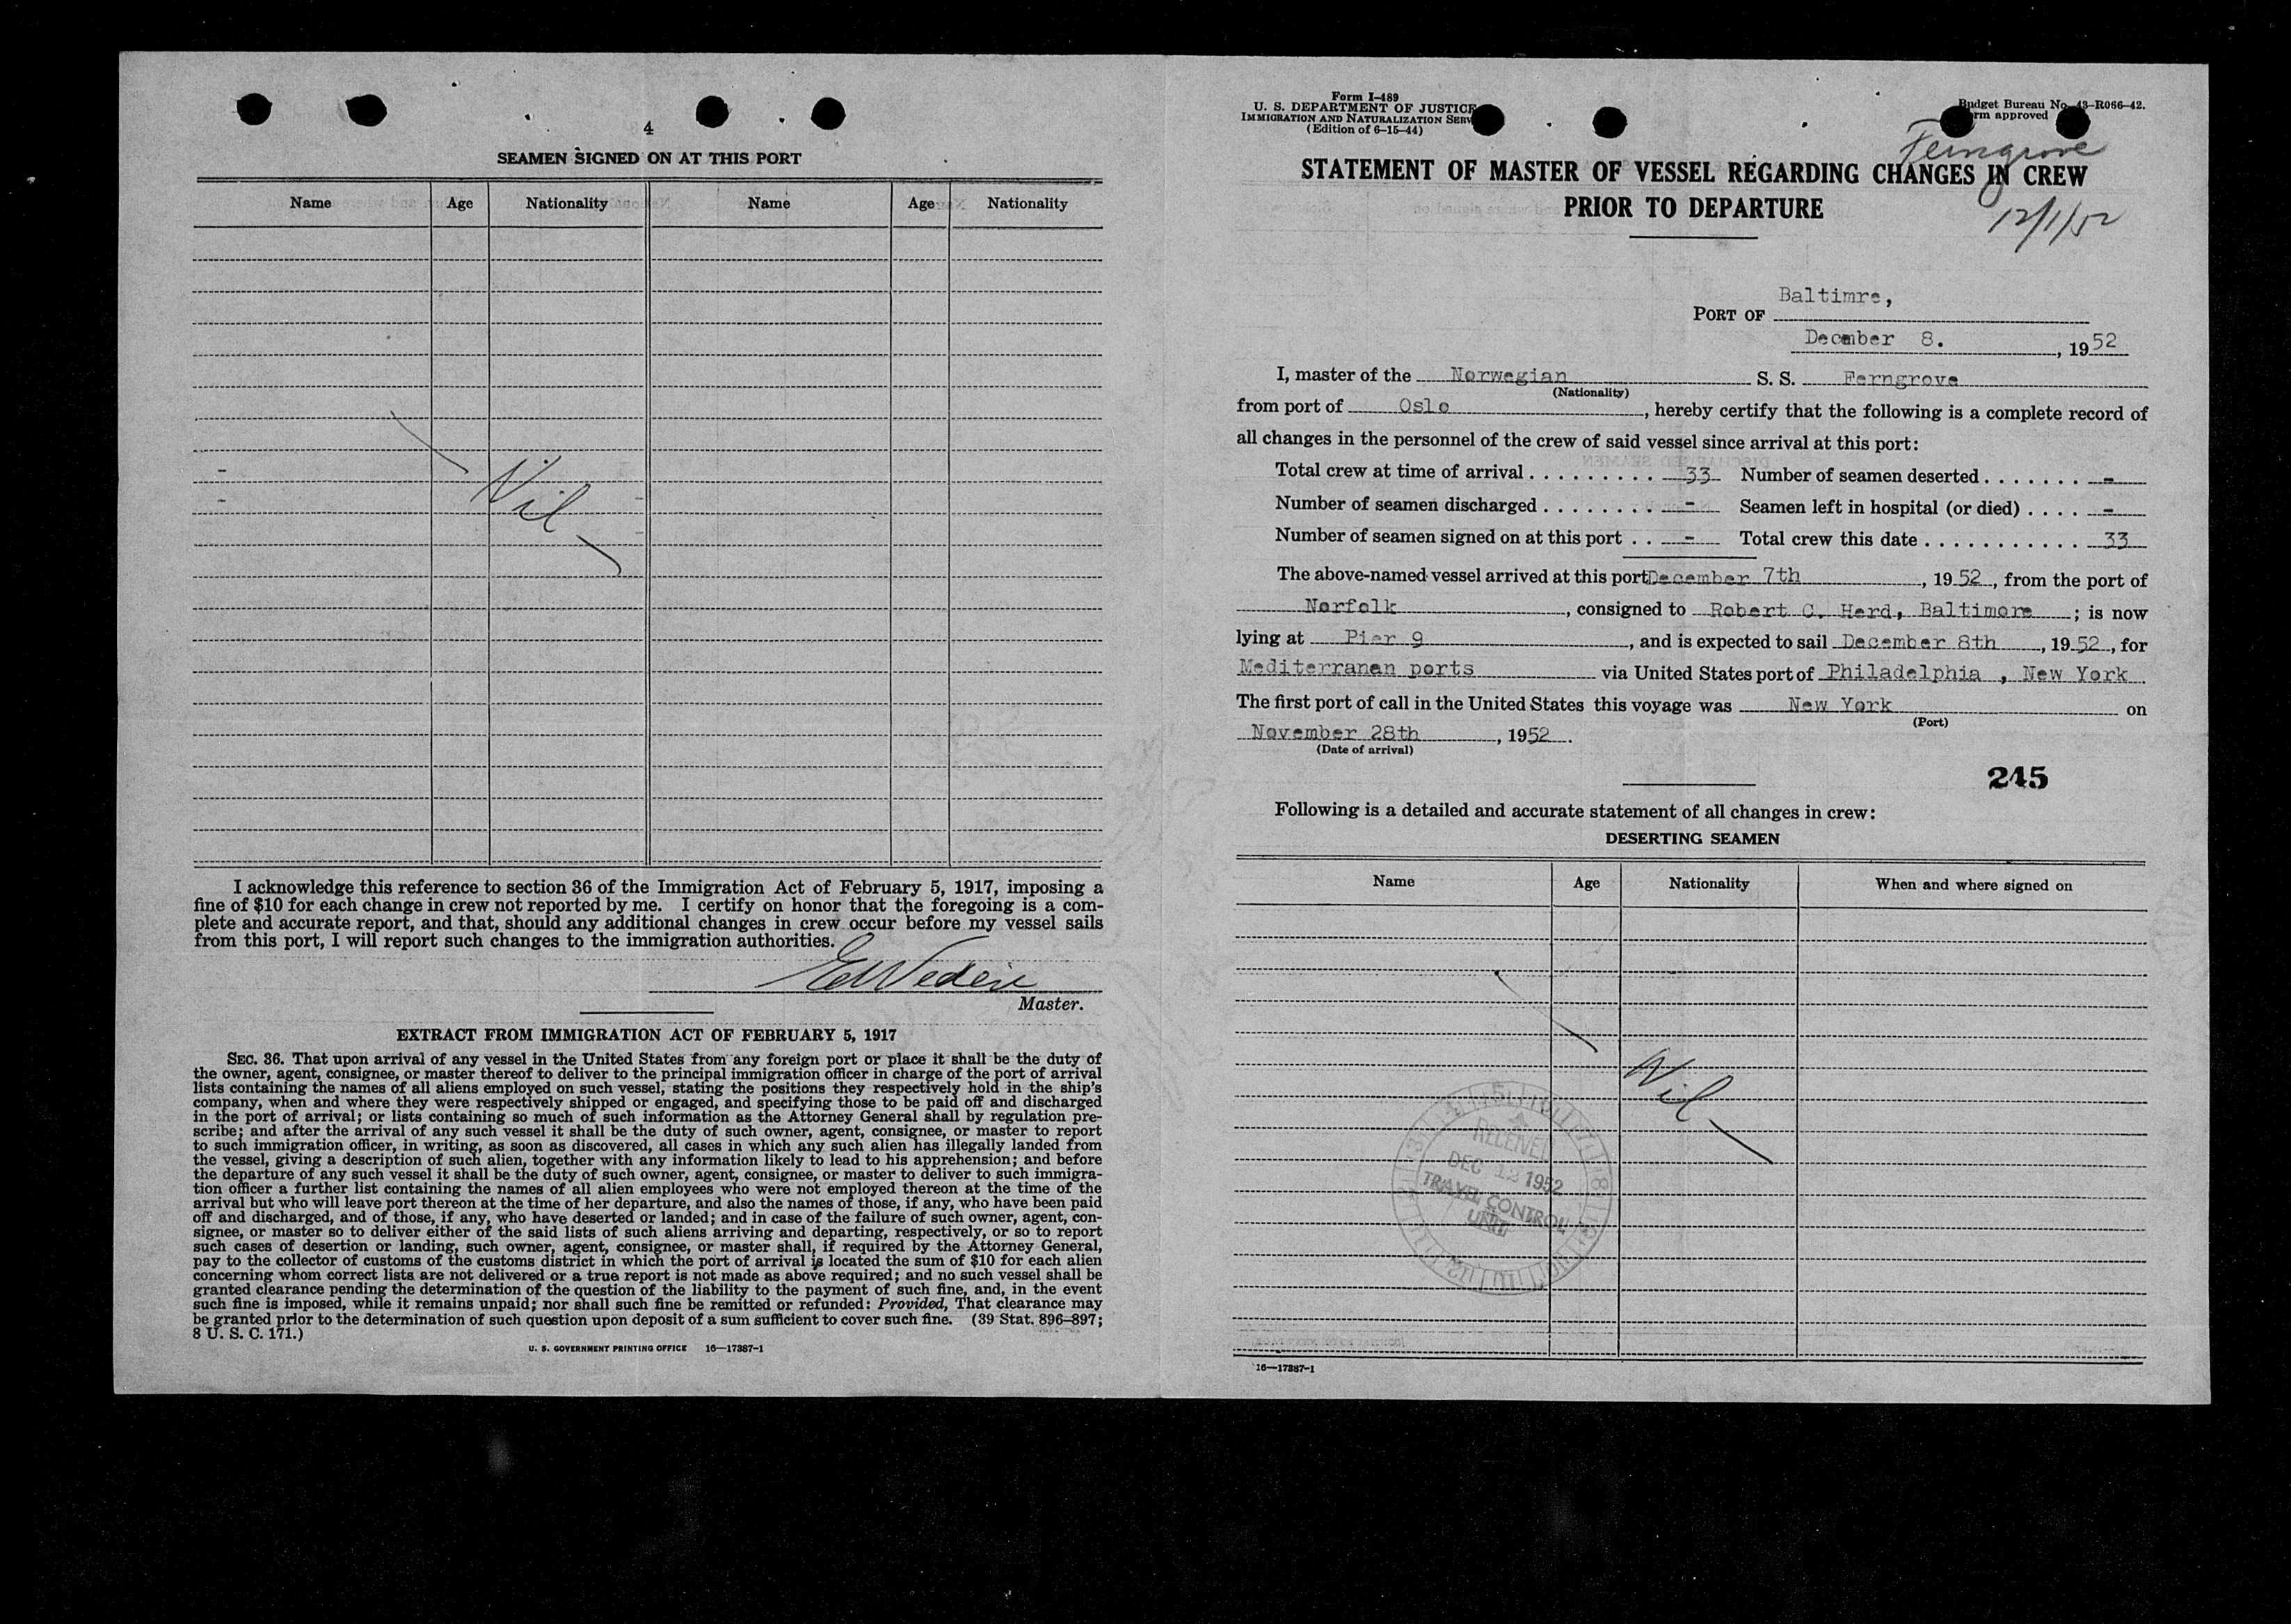 4
SEAMEN SIGNED ON AT THIS PORT
Name Age Nationality Name Age Nationality
Nil
I acknowledge this reference to section 36 of the Immigration Act of February 5, 1917, imposing a
fine of $10 for each change in crew not reported by me. I certify on honor that the foregoing is a com-
plete and accurate report, and that, should any additional changes in crew occur before my vessel sails
from this port, I will report such changes to the immigration authorities.
Master.
EXTRACT FROM IMMIGRATION ACT OF FEBRUARY 5, 1917
SEC. 36. That upon arrival of any vessel in the United States from any foreign port or place it shall be the duty of
the owner, agent, consignee, or master thereof to deliver to the principal immigration officer in charge of the port of arrival
lists containing the names of all aliens employed on such vessel, stating the positions they respectively hold in the ship's
company, when and where they were respectively shipped or engaged, and specifying those to be paid off and discharged
in the port of arrival; or lists containing so much of such information as the Attorney General shall by regulation pre-
scribe; and after the arrival of any such vessel it shall be the duty of such owner, agent, consignee, or master to report
to such immigration officer, in writing, as soon as discovered, all cases in which any such alien has illegally landed from
the vessel, giving a description of such alien, together with any information likely to lead to his apprehension; and before
the departure of any such vessel it shall be the duty of such owner, agent, consignee, or master to deliver to such immigra-
tion officer a further list containing the names of all alien employees who were not employed thereon at the time of the
arrival but who will leave port thereon at the time of her departure, and also the names of those, if any, who have been paid
off and discharged, and of those, if any, who have deserted or landed; and in case of the failure of such owner, agent, con-
signee, or master so to deliver either of the said lists of such aliens arriving and departing, respectively, or so to report
such cases of desertion or landing, such owner, agent, consignee, or master shall, if required by the Attorney General,
pay to the collector of customs of the customs district in which the port of arrival is located the sum of $10 for each alien
concerning whom correct lists are not delivered or a true report is not made as above required; and no such vessel shall be
granted clearance pending the determination of the question of the liability to the payment of such fine, and, in the event
such fine is imposed, while it remains unpaid; nor shall such fine be remitted or refunded: Provided, That clearance may
be granted prior to the determination of such question upon deposit of a sum sufficient to cover such fine. (39 Stat. 896–897;
8 U. S. C. 171.)
U. S. GOVERNMENT PRINTING OFFICE 16—17387-1
Form I-489
U. S. DEPARTMENT OF JUSTICE
IMMIGRATION AND NATURALIZATION SERV
(Edition of 6-15-44)
Budget Bureau No. 43-R066-42.
rm approved
Ferngrove
STATEMENT OF MASTER OF VESSEL REGARDING CHANGES IN CREW
PRIOR TO DEPARTURE
12/1/52
PORT OF Baltimre,
December 8. , 1952
I, master of the Norwegian S. S. Ferngrove
(Nationality)
from port of Oslo , hereby certify that the following is a complete record of
all changes in the personnel of the crew of said vessel since arrival at this port:
Total crew at time of arrival . . . . . . . . . 33 Number of seamen deserted . . . . . . . -
Number of seamen discharged . . . . . . . . - Seamen left in hospital (or died) . . . . -
Number of seamen signed on at this port . . - Total crew this date . . . . . . . . . . . . 33
The above-named vessel arrived at this port December 7th , 1952 , from the port of
Norfolk , consigned to Robert C. Herd, Baltimore ; is now
lying at Pier 9 , and is expected to sail December 8th , 1952 , for
Mediterranen ports via United States port of Philadelphia , New York .
The first port of call in the United States this voyage was New York on
(Port)
November 28th , 1952 .
(Date of arrival)
245
Following is a detailed and accurate statement of all changes in crew:
DESERTING SEAMEN
Name Age Nationality When and where signed on
Nil
RECEIVED
DEC 12 1952
TRAVEL CONTROL
UNIT
16—17387-1